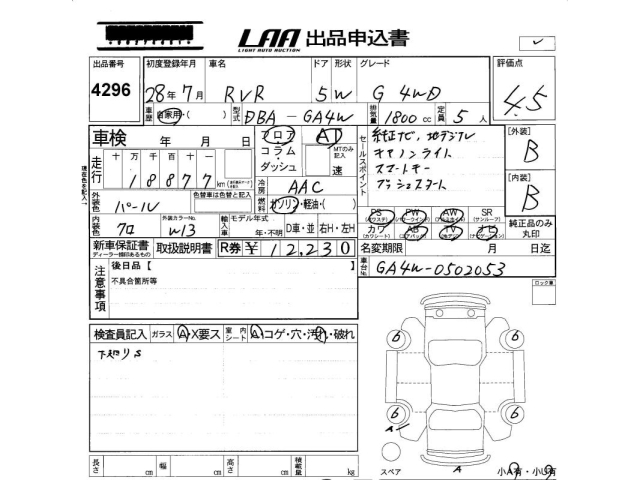 LAA 出品申込書
LIGHT AUTO AUCTION
出品番号 初度登録年月 車名 ドア 形状 グレード 評価点
4296 28年7月 RVR 5 W G 4WD 4.5
車歴 自家用・( ) 型式 DBA-GA4W 排気量 1800cc 定員 5人
車検 年 月 日 フロア コラム・ダッシュ AT MTのみ記入 速
セールスポイント 純正ナビ、地デジTV
キセノンライト
スマートキー
プッシュスタート
[外装] B
走行 十 万 千 百 十 一
1 8 8 7 7 km
現在色を記入 外装色 パール 色替車は色替と記入
冷房 AAC
燃料 ガソリン・軽油・( )
[内装] B
PS PW AW SR
(パワステ) (パワーウインドウ) (サンルーフ)
カワ AB TV ナビ
(カワシート) (エアバック) (ナビゲーション)
純正品のみ丸印
内装色 クロ 外装カラーNo. W13 輸入車 モデル年式 年・不明 D車・並 右H・左H
新車保証書 取扱説明書 R券 ¥ 12,230 名変期限 月 日迄
ディーラー捺印あるもの
車台No. GA4W-0502053
注意事項 後日品【
不具合箇所等
ロック車
検査員記入 ガラス A・X要ス 室内シート A・コゲ・穴・汚れ・破れ
下廻りS
6 6
6 6
A
A
スペア
小A有・小U有
長さ cm 幅 cm 高さ cm 積載量 kg